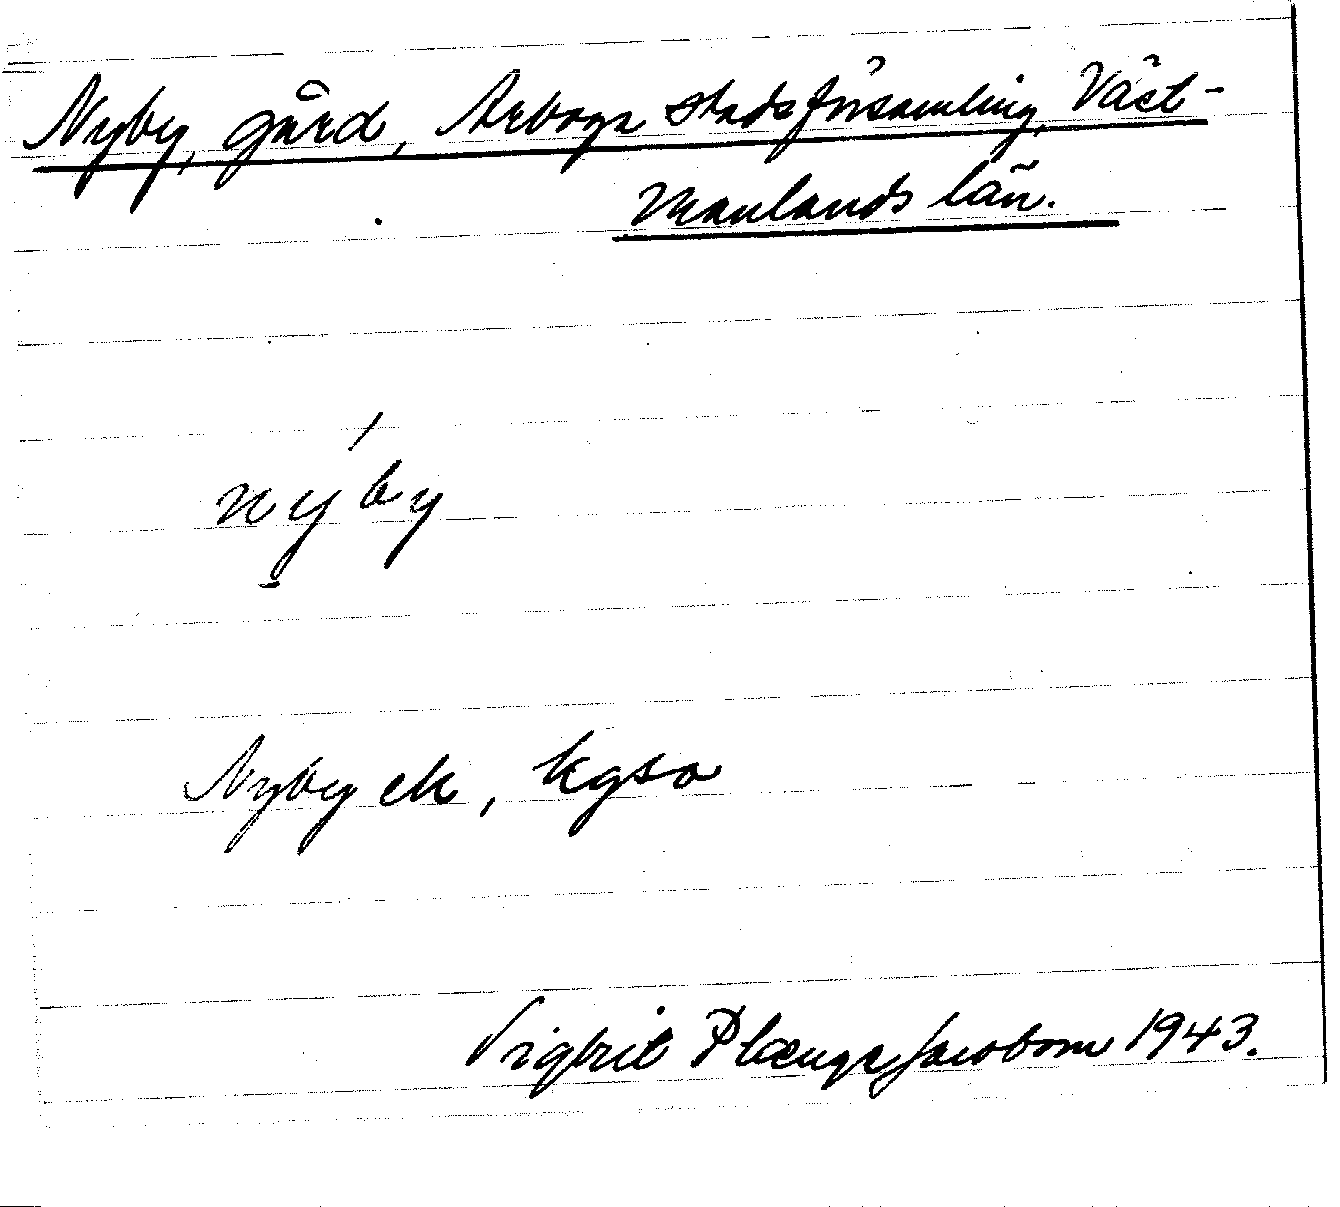 Nyby, gård, Arboga stadsförsamling, Väst-
manlands län.
nýby
Nyby ek, kgso
Sigbrit Plænge Jacobson 1943.